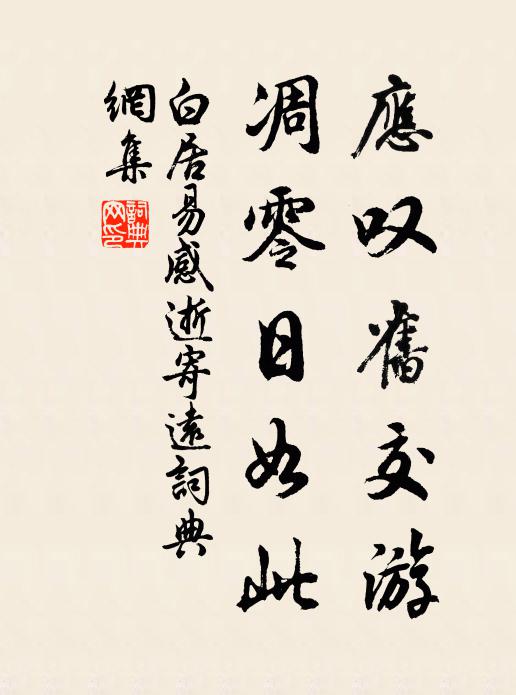 應叹舊交游
凋零日如此
白居易感逝寄遠詞典
網集
詞典
网印